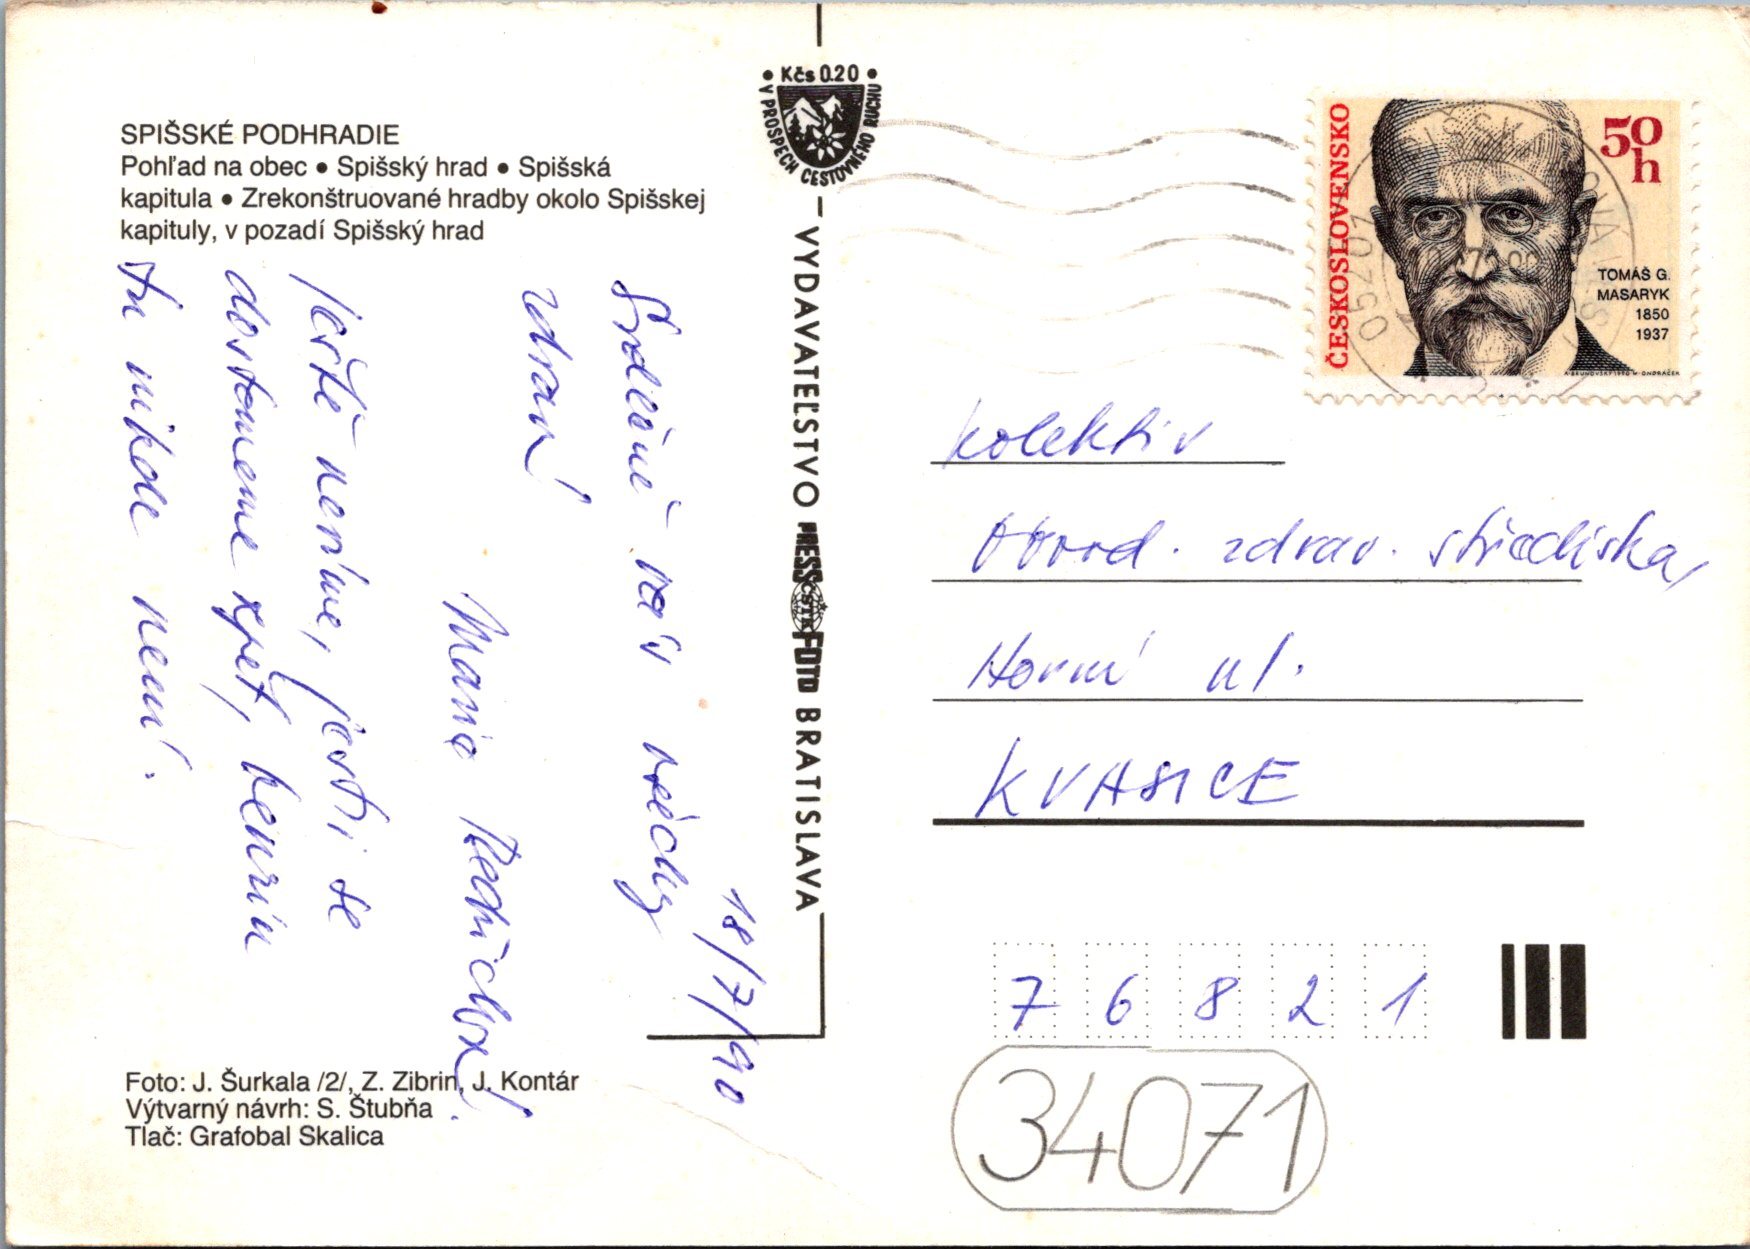 SPIŠSKÉ PODHRADIE
Pohľad na obec • Spišský hrad • Spišská
kapitula • Zrekonštruované hradby okolo Spišskej
kapituly, v pozadí Spišský hrad
18/7/90
Srdečně vás všechny
zdraví
Mařia
Ještě nevíme, jestli se
dostaneme zpět, benzin
tu nikde není.
Foto: J. Šurkala /2/, Z. Zibrin, J. Kontár
Výtvarný návrh: S. Štubňa
Tlač: Grafobal Skalica
• Kčs 0.20 •
V PROSPECH CESTOVNÉHO RUCHU
VYDAVATEĽSTVO PRESSFOTO BRATISLAVA
ČSTK
ČESKOSLOVENSKO
50
h
TOMÁŠ G.
MASARYK
1850
1937
052 07
kolektiv
Obvod. zdrav. střediska,
Horní ul.
KVASICE
76821
34071